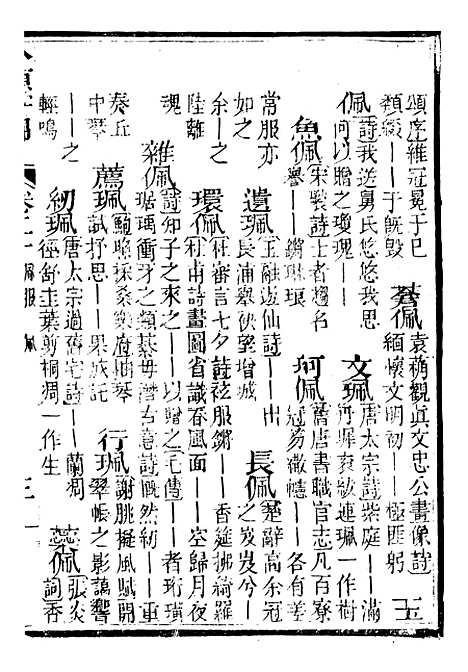 頌序維冠冕于巳
類綴——于旣毀
蒼佩
袁桷觀眞文忠公畫像詩
緬懷文明初——極匪躬
佩
詩我送舅氏悠悠我思
何以贈之瓊瑰——
文珮
唐太宗詩紫庭——滿
丹墀袞紱連珮一作樹
魚佩
宋褧詩士者趨名
譽——鏘琳琅
珂佩
舊唐書職官志凡百寮
冠笏繖幰——各有差
常服亦
如之
遺珮
王融遊仙詩——出
長浦舉袂望增城
長佩
楚辭高余冠
之岌岌兮—
余——之
陸離
環佩
杜審言七夕詩袨服鏘——香筵拂綺羅
杜甫詩畫圖省識春風面——空歸月夜
魂
雜佩
詩知子之來之——以贈之毛傳——者珩璜
琚瑀衝牙之類綦毋潛古意詩慨然紉——重
奏丘
中琴
薦珮
採桑樂府抽琴
試抒思——果成託
行珮
謝朓擬風賦開
翠帳之影藹響
——之
輕鳴
紉珮
唐太宗過舊宅詩——蘭凋
徑舒圭葉剪桐凋一作生
蕊佩
張炎
詞香